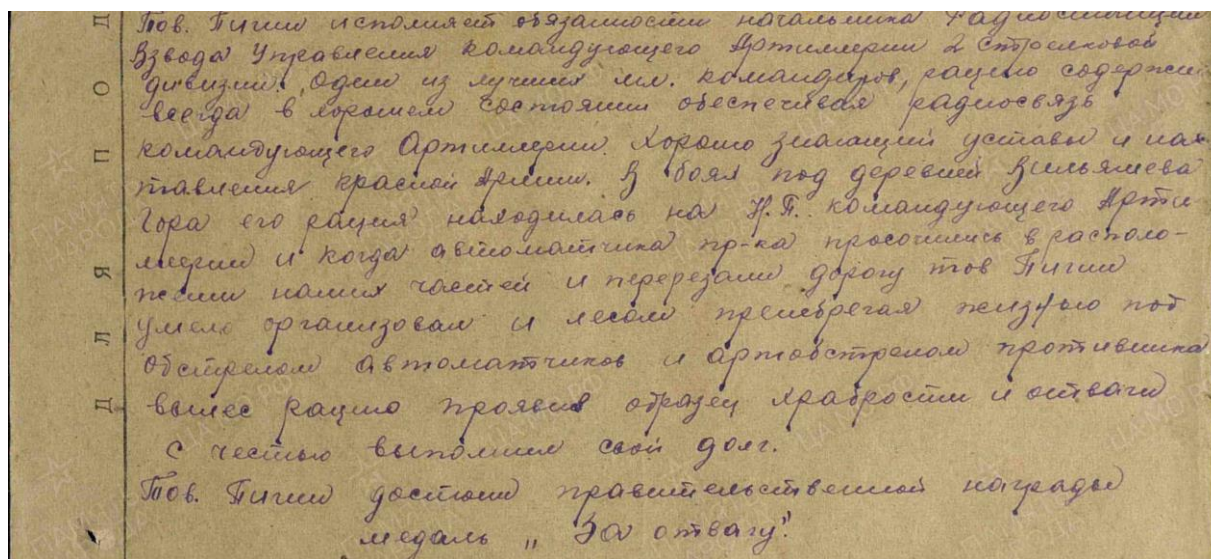 Тов. Пигин исполняет обязанности начальника Радиостанции
Взвода Управления командующего Артиллерии 2 стрелковой
дивизии. Один из лучших мл. командиров, рацию содержит
всегда в хорошем состоянии обеспечивая радиосвязь
командующего Артиллерии. Хорошо знающий уставы и нас-
тавления красной Армии. В боях под деревней
Гора его рация находилась на Н.П. командующего Арти
лерии и когда автоматчика пр-ка просочились в располо-
жении наших частей и перерезали дорогу тов Пигин
умело организовал и лесом пренебрегая жизнью под
обстрелом автоматчиков и артобстрелом противника
вынес рацию проявив образец храбрости и отваги
с честью выполнил свой долг.
Тов. Пигин достоин правительственной награды
медаль „За отвагу".
Д Л Я П О Д